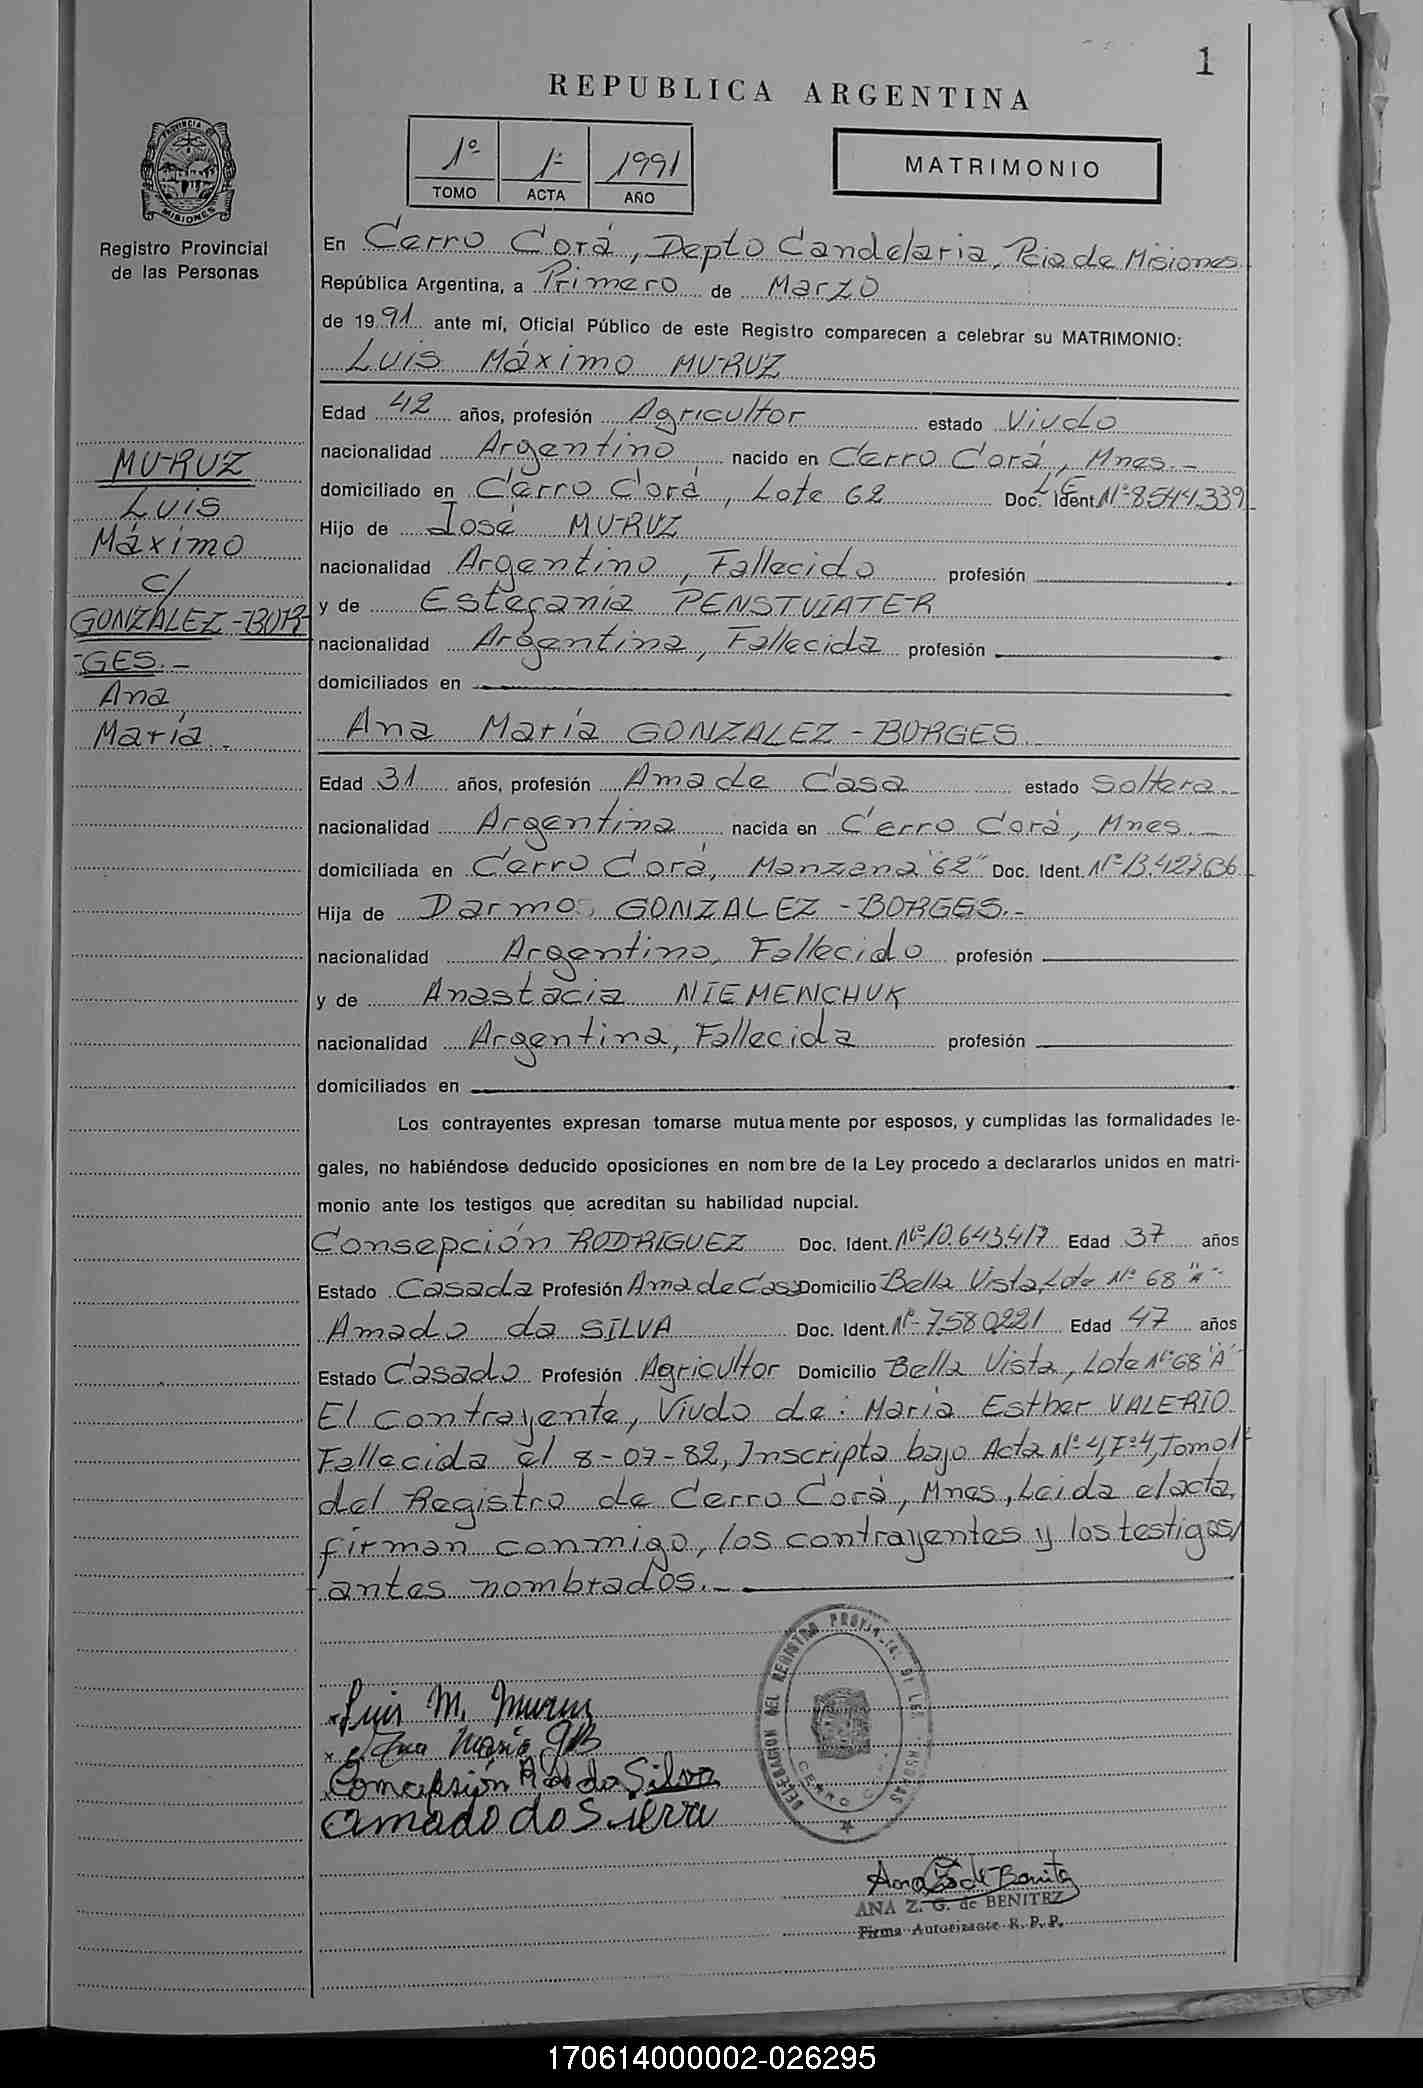 1
REPUBLICA ARGENTINA
1º 1ª 1991
TOMO ACTA AÑO
MATRIMONIO
PROVINCIA DE
MISIONES
Registro Provincial
de las Personas
En Cerro Corá, Depto Candelaria, Pcia de Misiones
República Argentina, a Primero de Marzo
de 1991 ante mí, Oficial Público de este Registro comparecen a celebrar su MATRIMONIO:
Luis Máximo MURUZ
Edad 42 años, profesión Agricultor estado Viudo
nacionalidad Argentino, nacido en Cerro Corá, Mnes.-
domiciliado en Cerro Corá, Lote 62 Doc. Ident. L.E. Nº 8.544.339
Hijo de José MURUZ
nacionalidad Argentino, Fallecido profesión
y de Estegania PENSTUIATER
nacionalidad Argentina, Fallecida profesión
domiciliados en
MURUZ
Luis
Máximo
c/
GONZALEZ-BOR-
GES.-
Ana
María.
Ana María GONZALEZ-BORGES
Edad 31 años, profesión Ama de Casa estado Soltera.-
nacionalidad Argentina nacida en Cerro Corá, Mnes.-
domiciliada en Cerro Corá, Manzana "62" Doc. Ident. Nº 13.427.
Hija de Darmo GONZALEZ-BORGES.-
nacionalidad Argentino, Fallecido profesión
y de Anastacia NIEMENCHUK
nacionalidad Argentina, Fallecida profesión
domiciliados en
Los contrayentes expresan tomarse mutuamente por esposos, y cumplidas las formalidades le-
gales, no habiéndose deducido oposiciones en nombre de la Ley procedo a declararlos unidos en matri-
monio ante los testigos que acreditan su habilidad nupcial.
Consepción RODRIGUEZ Doc. Ident. Nº 10.643.417 Edad 37 años
Estado Casada Profesión Ama de Casa Domicilio Bella Vista, Lote Nº 68 "A"
Amado da SILVA Doc. Ident. Nº 7.580.221 Edad 47 años
Estado Casado Profesión Agricultor Domicilio Bella Vista, Lote Nº 68 "A"
El contrayente, Viudo de: Maria Esther VALERIO
Fallecida el 8-07-82, Inscripta bajo Acta Nº 4, Fº 4, Tomo 1º
del Registro de Cerro Corá, Mnes, Leida el acta,
firman conmigo, los contrayentes y los testigos,
antes nombrados.-
DELEGACION DEL REGISTRO PROVINCIAL DE LAS PERSONAS
CERRO
Luis M. Muruz
Ana María GB
Concepsión R de da Silva
amado do Silva
Ana Z de Benitez
ANA Z. G. de BENITEZ
Firma Autorizante R. P. P.
170614000002-026295